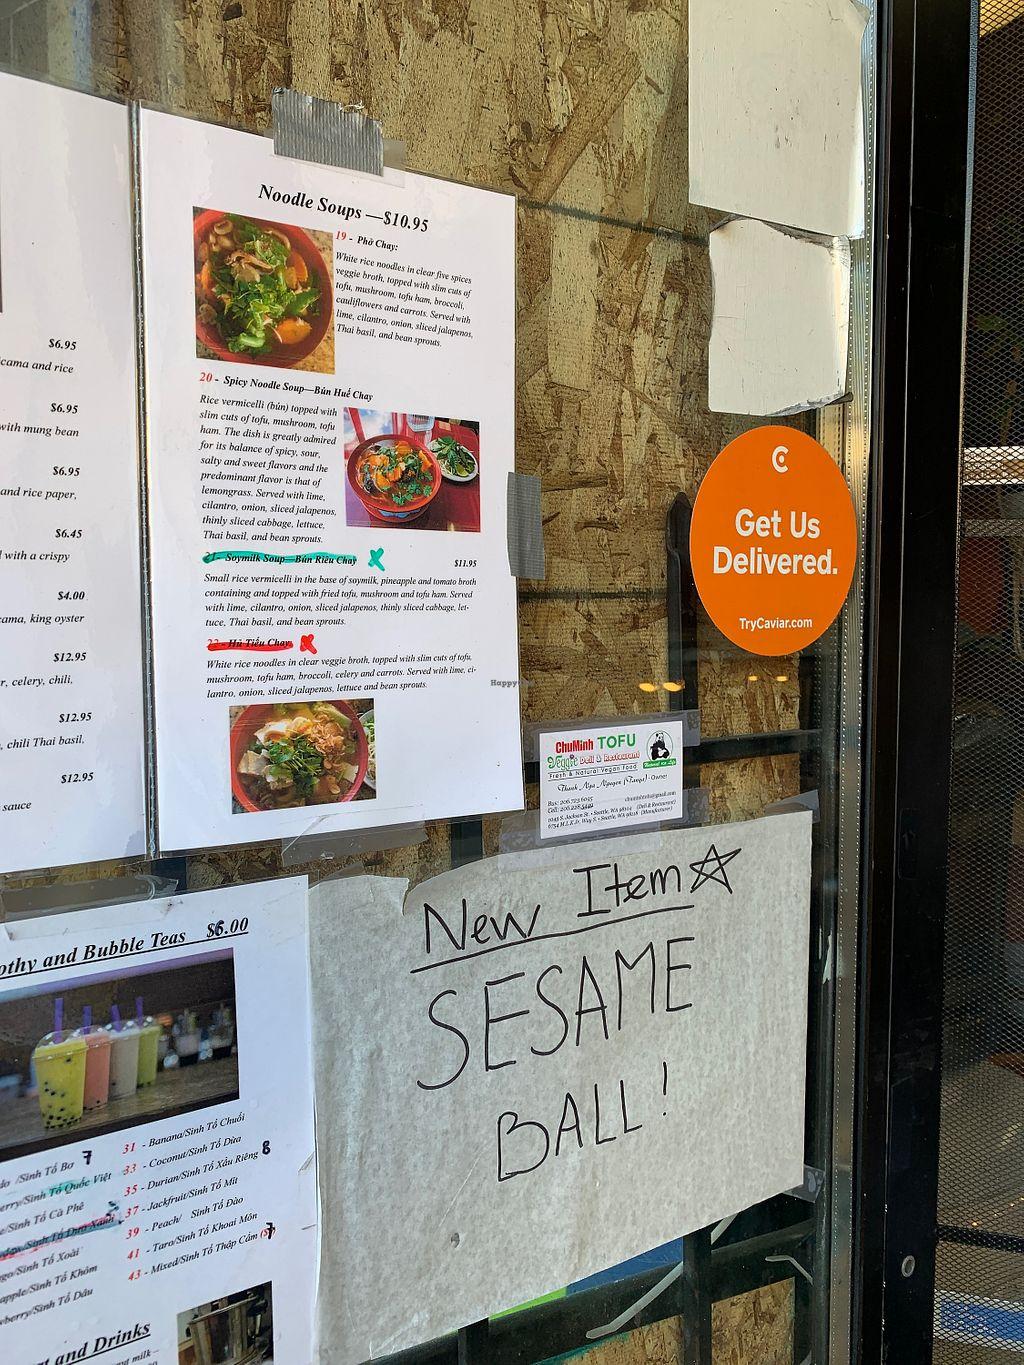 $6.95
cama and rice
$6.95
with mung bean
$6.95
and rice paper,
$6.45
d with a crispy
$4.00
cama, king oyster
$12.95
r, celery, chili,
$12.95
, chili Thai basil,
$12.95
sauce
Noodle Soups —$10.95
19 - Phở Chay:
White rice noodles in clear five spices
veggie broth, topped with slim cuts of
tofu, mushroom, tofu ham, broccoli,
cauliflowers and carrots. Served with
lime, cilantro, onion, sliced jalapenos,
Thai basil, and bean sprouts.
20 - Spicy Noodle Soup—Bún Huế Chay
Rice vermicelli (bún) topped with
slim cuts of tofu, mushroom, tofu
ham. The dish is greatly admired
for its balance of spicy, sour,
salty and sweet flavors and the
predominant flavor is that of
lemongrass. Served with lime,
cilantro, onion, sliced jalapenos,
thinly sliced cabbage, lettuce,
Thai basil, and bean sprouts.
21- Soymilk Soup—Bún Riêu Chay X $11.95
Small rice vermicelli in the base of soymilk, pineapple and tomato broth
containing and topped with fried tofu, mushroom and tofu ham. Served
with lime, cilantro, onion, sliced jalapenos, thinly sliced cabbage, let-
tuce, Thai basil, and bean sprouts.
22 - Hủ Tiếu Chay: X
White rice noodles in clear veggie broth, topped with slim cuts of tofu,
mushroom, tofu ham, broccoli, celery and carrots. Served with lime, ci-
lantro, onion, sliced jalapenos, lettuce and bean sprouts.
Get Us
Delivered.
TryCaviar.com
ChuMinh TOFU
Veggie Deli & Restaurant
Fresh & Natural Vegan Food
Natural for Life
Thanh Nga Nguyen (Tanya) - Owner
Bus: 206.723.6095
chuminhtofu@gmail.com
1043 S. Jackson St. • Seattle, WA 98104 (Deli & Restaurant)
6754 M.L.K Jr. Way S. • Seattle, WA 98118 (Manufacture)
New Item
SESAME
BALL!
othy and Bubble Teas $6.00
do /Sinh Tố Bơ 7
erry/Sinh Tố Quốc Việt
e/Sinh Tố Cà Phê
Sinh Tố Dưa Xanh
go/Sinh Tố Xoài
apple/Sinh Tố Khóm
wberry/Sinh Tố Dâu
31 - Banana/Sinh Tố Chuối
33 - Coconut/Sinh Tố Dừa
35 - Durian/Sinh Tố Xầu Riêng 8
37 - Jackfruit/Sinh Tố Mít
39 - Peach/ Sinh Tố Đào
41 - Taro/Sinh Tố Khoai Môn
43 - Mixed/Sinh Tố Thập Cẩm 7
t and Drinks